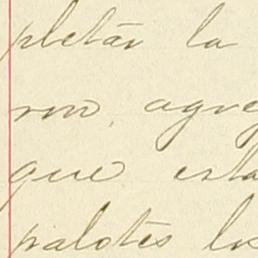 pletar la
ron, agre
que esta
palotes los